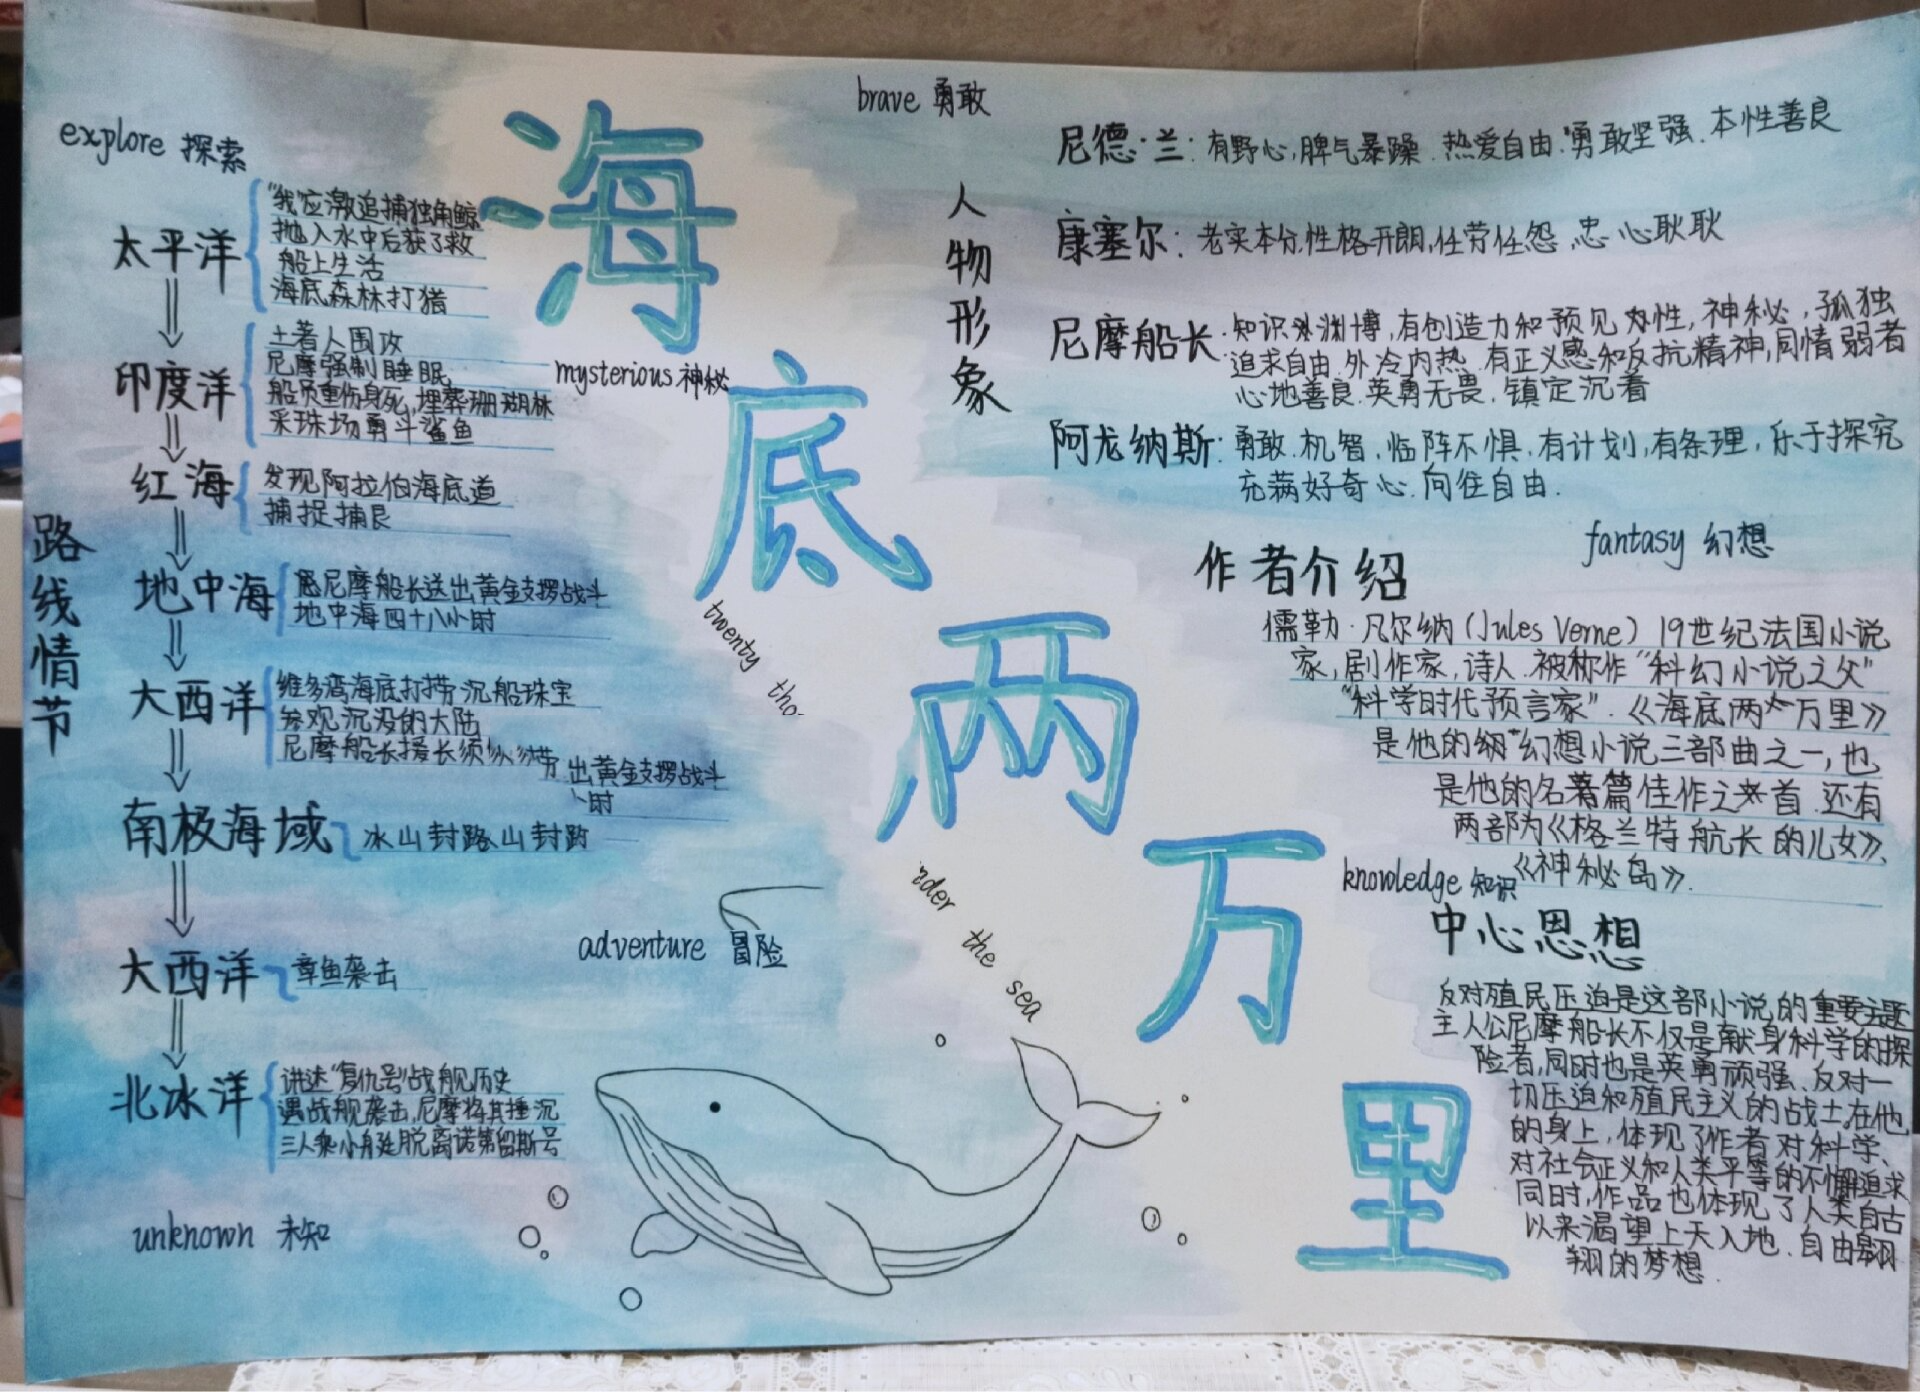 explore 探索
路线情节
太平洋
"我"应激追捕独角鲸
抛入水中后获了救
船上生活
海底森林打猎
印度洋
土著人围攻
尼摩强制睡眠
船员重伤身死,埋葬珊瑚林
采珠场勇斗鲨鱼
红海
发现阿拉伯海底道
捕捉捕良
地中海
尼摩船长送出黄金支援战斗
地中海四十八小时
大西洋
维多湾海底打捞沉船珠宝
参观沉没的大陆
尼摩船长援长须
出黄金支援战斗
时
南极海域
冰山封路山封路
大西洋
章鱼袭击
北冰洋
讲述"复仇号"战舰历史
遇战舰袭击,尼摩将其撞沉
三人乘小艇脱离诺第留斯号
unknown 未知
海底两万里
mysterious 神秘
twenty tho
adventure 冒险
der the sea
brave 勇敢
人物形象
尼德·兰: 有野心,脾气暴躁.热爱自由.勇敢坚强.本性善良
康塞尔: 老实本分,性格开朗,任劳任怨.忠心耿耿
尼摩船长:知识渊博,有创造力和预见性,神秘,孤独
追求自由.外冷内热.有正义感和反抗精神,同情弱者
心地善良.英勇无畏.镇定沉着
阿龙纳斯:勇敢.机智,临阵不惧,有计划,有条理,乐于探究
充满好奇心.向往自由.
fantasy 幻想
作者介绍
儒勒·凡尔纳(Jules Verne)19世纪法国小说
家,剧作家,诗人.被称作"科幻小说之父"
"科学时代预言家".《海底两万里》
是他的幻想小说三部曲之一,也
是他的名著篇佳作之首.还有
两部为《格兰特航长的儿女》、
《神秘岛》.
knowledge 知识
中心思想
反对殖民压迫是这部小说的重要主题
主人公尼摩船长不仅是献身科学的探
险者,同时也是英勇顽强.反对一
切压迫和殖民主义的战士.在他
的身上,体现了作者对科学、
对社会正义和人类平等的不懈追求
同时,作品也体现了人类自古
以来渴望上天入地.自由翱
翔的梦想.